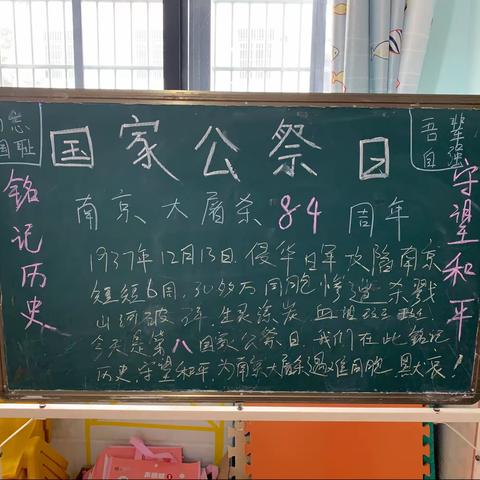 勿忘
国耻
国家公祭日
吾辈
自强
铭记历史
守望和平
南京大屠杀84周年
1937年12月13日,侵华日军攻陷南京
短短6周,30多万同胞惨遭杀戮
山河破碎,生灵涂炭,血迹斑斑
今天是第八国家公祭日,我们在此铭记
历史,守望和平,为南京大屠杀遇难同胞默哀!